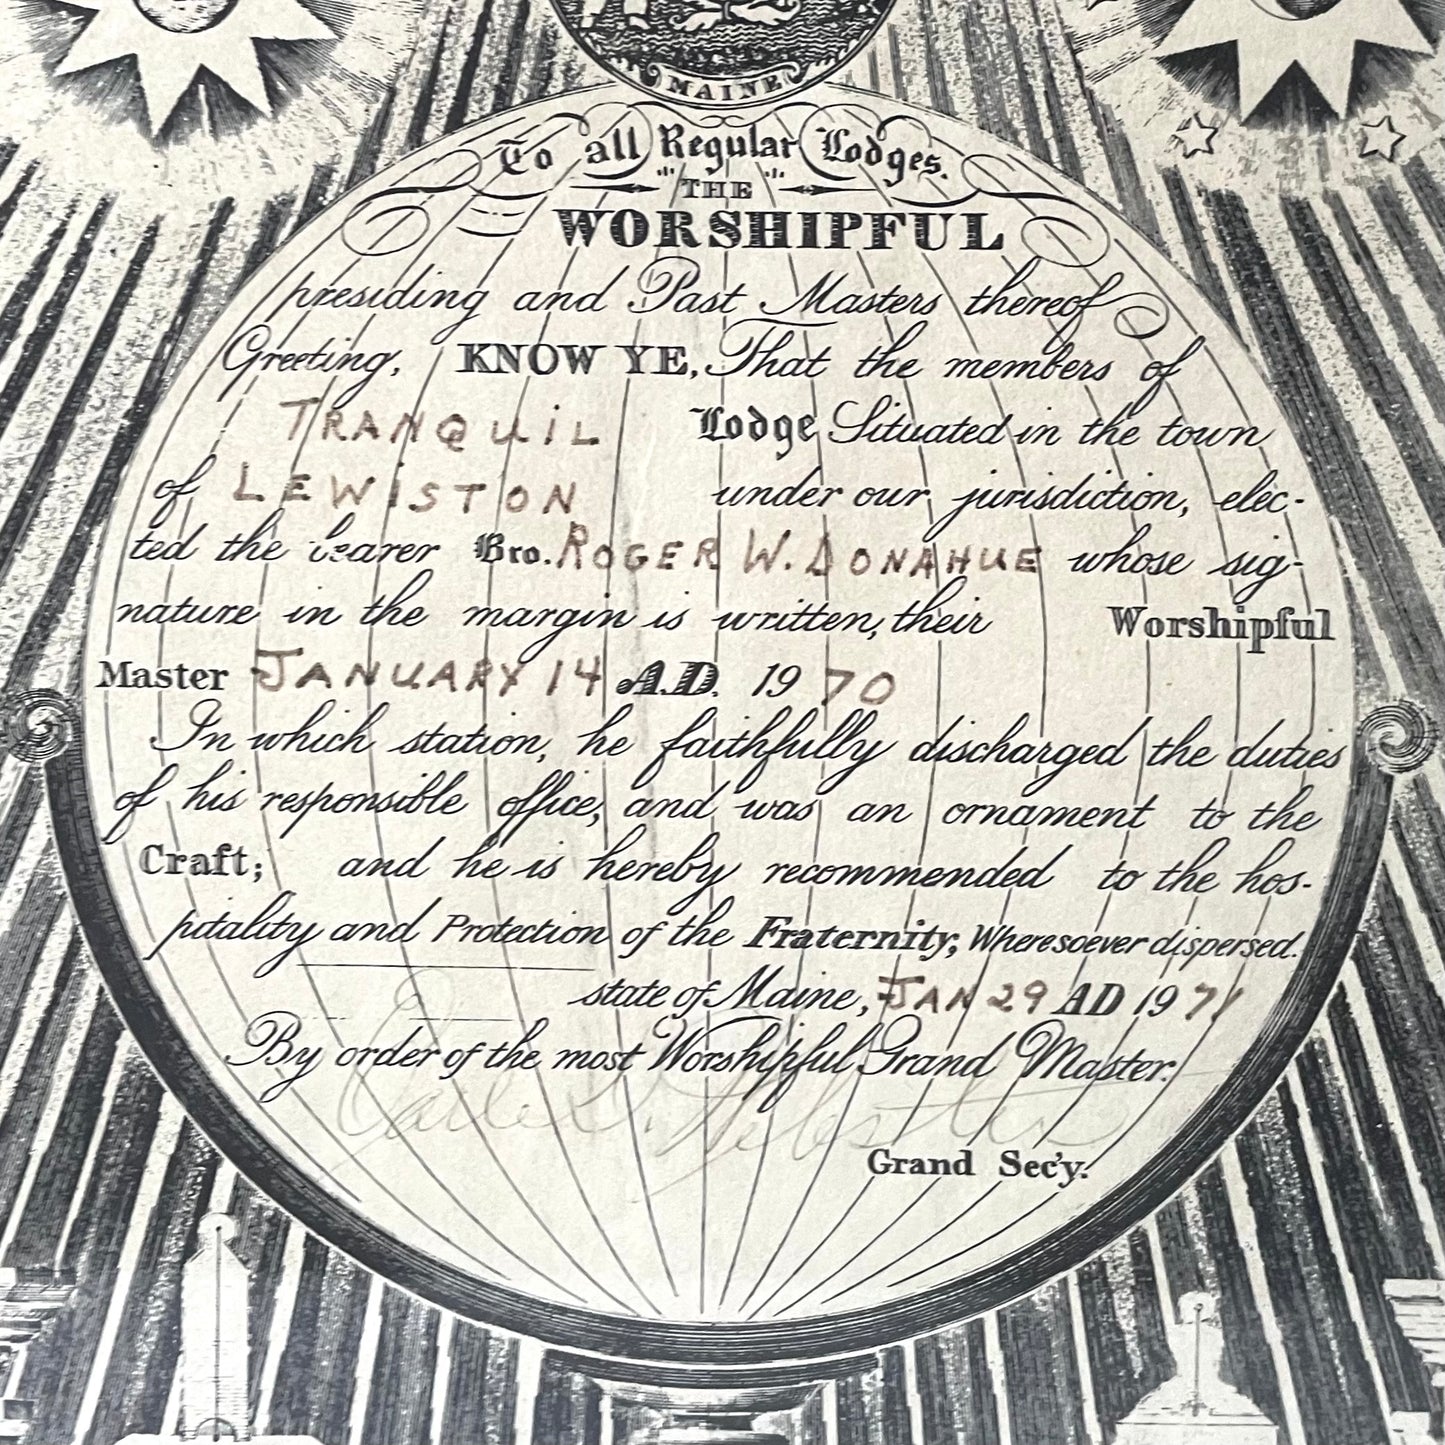 MAINE
To all Regular Lodges.
THE
WORSHIPFUL
presiding and Past Masters thereof
Greeting, KNOW YE, That the members of
TRANQUIL Lodge Situated in the town
of LEWISTON under our jurisdiction, elec-
ted the bearer Bro. ROGER W. DONAHUE whose sig-
nature in the margin is written, their Worshipful
Master JANUARY 14 A.D. 1970
In which station, he faithfully discharged the duties
of his responsible office, and was an ornament to the
Craft; and he is hereby recommended to the hos-
pitality and Protection of the Fraternity, Wheresoever dispersed.
state of Maine, JAN 29 AD 1971
By order of the most Worshipful Grand Master.
Grand Sec'y.